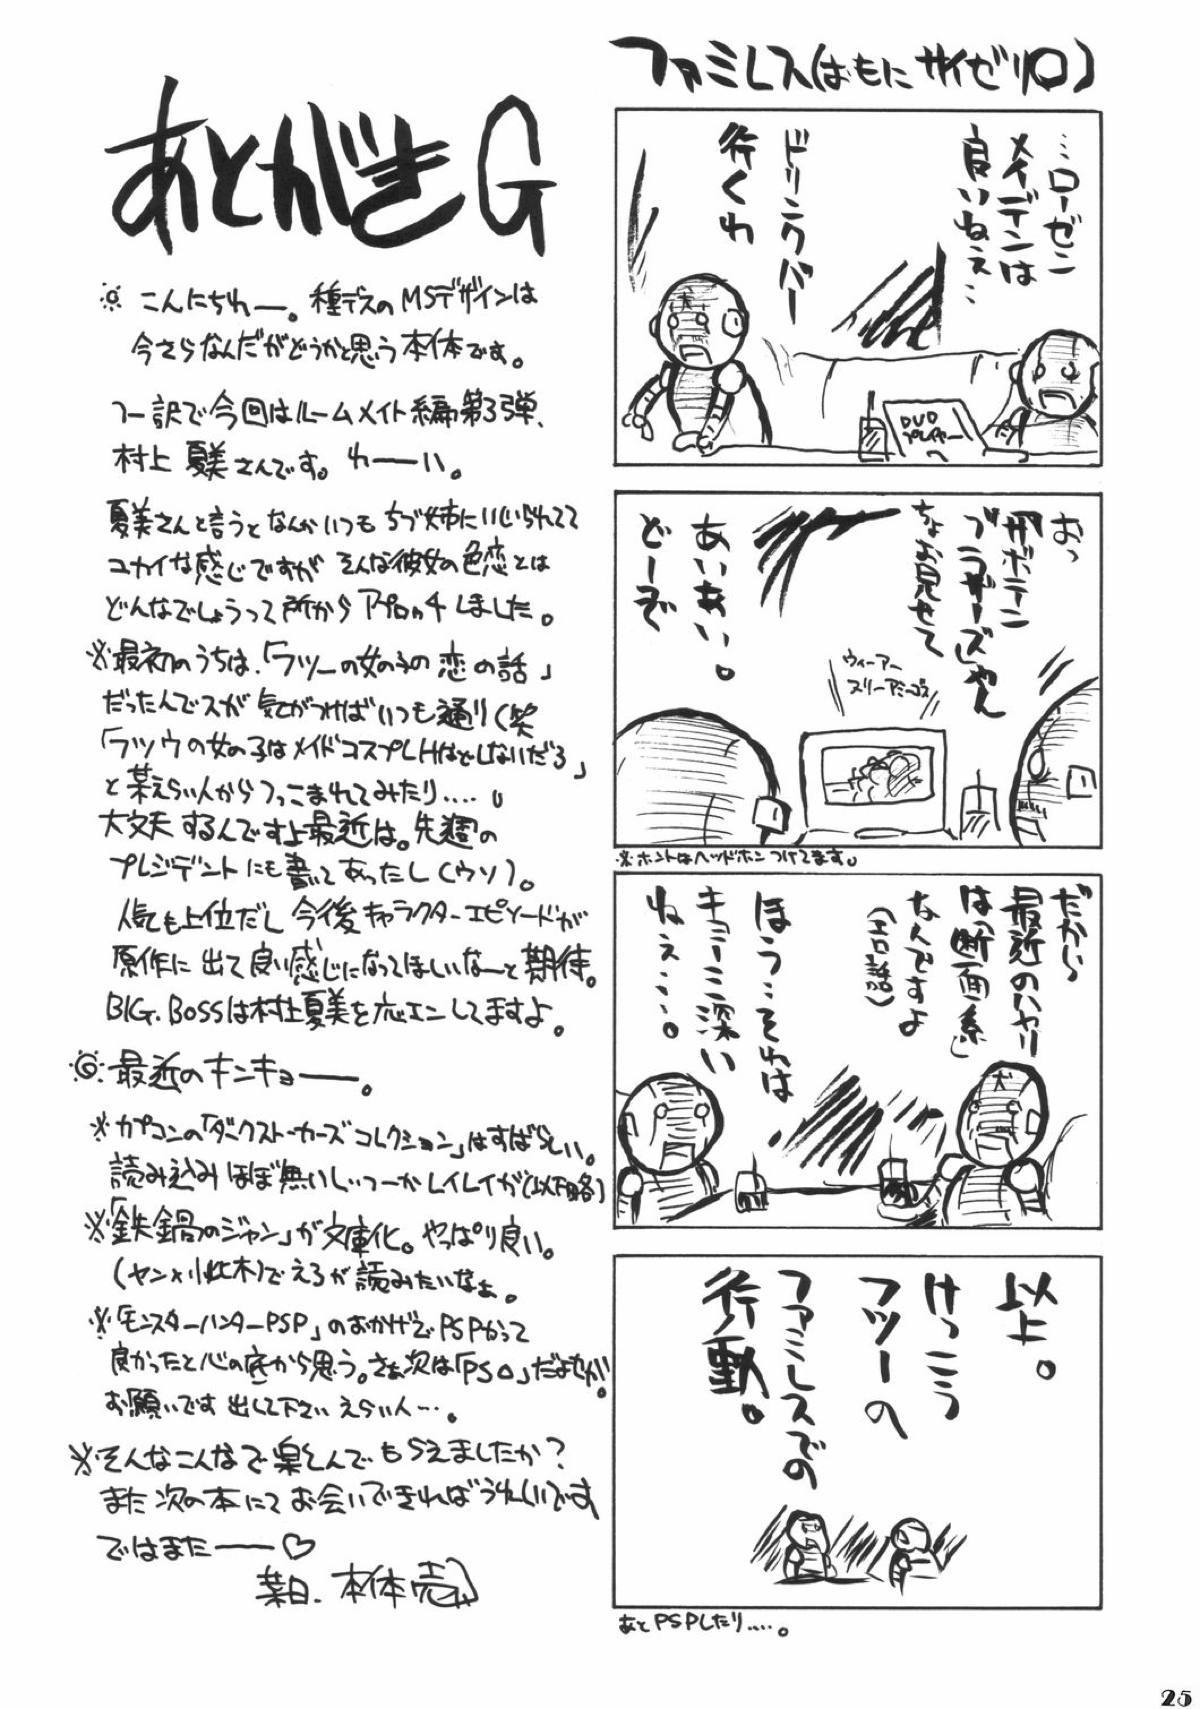 ファミレス(おもにサイゼリ○)
…ローゼン
メイデンは
良いねぇ…
ドリンクバー
行くわ
DVD
プレイヤー
へ
おっ
『サボテン
ブラザーズ』やん
ちょお見せて
あいあい。
どーぞ
ウィーアー
スリーアミーゴス
※ホントはヘッドホンつけてます。
だから
最近のハヤリ
は「断面系」
なんですよ
(エロ話)
ほう…それは
キョーミ深い
ねぇ…。
以上。
けっこう
フツーの
ファミレスでの
行動。
あとPSPしたり…。
あとがきG
こんにちわー。種デスのMSデザインは
今さらなんだがどうかと思う本体です。
つー訳で今回はルームメイト編第3弾、
村上 夏美さんです。わーい。
夏美さんと言うとなんかいつもちづ姉にいじられてて
ユカイな感じですがそんな彼女の色恋とは
どんなでしょうって所からアプローチしました。
※最初のうちは、「フツーの女の子の恋の話」
だったんでスが気がつけばいつも通り(笑
「フツウの女の子はメイドコスプレHはどしないだろ」
と某えらい人からつっこまれてみたり…。
大丈夫するんですよ最近は。先週の
プレジデントにも書いてあったし(ウソ)。
人気も上位だし今後キャラクターエピソードが
原作に出て良い感じになってほしいなーと期待。
BIG.BOSSは村上夏美を応エンしてますよ。
最近のキンキョー。
※カプコンの「ダークストーカーズコレクション」はすばらしい。
読み込みほぼ無いしつーかレイレイが(以下略)
※「鉄鍋のジャン」が文庫化。やっぱり良い。
(ヤン×小此木)でえろが読みたいなぁ。
※「モンスターハンターPSP」のおかげでPSPかって
良かったと心の底から思う。さぁ次は「PS○」だよセガ。
お願いです出して下さいえらい人…。
※そんなこんなで楽しんでもらえましたか?
また次の本にてお会いできればうれしいです
ではまたー♡
某日. 本体売
25